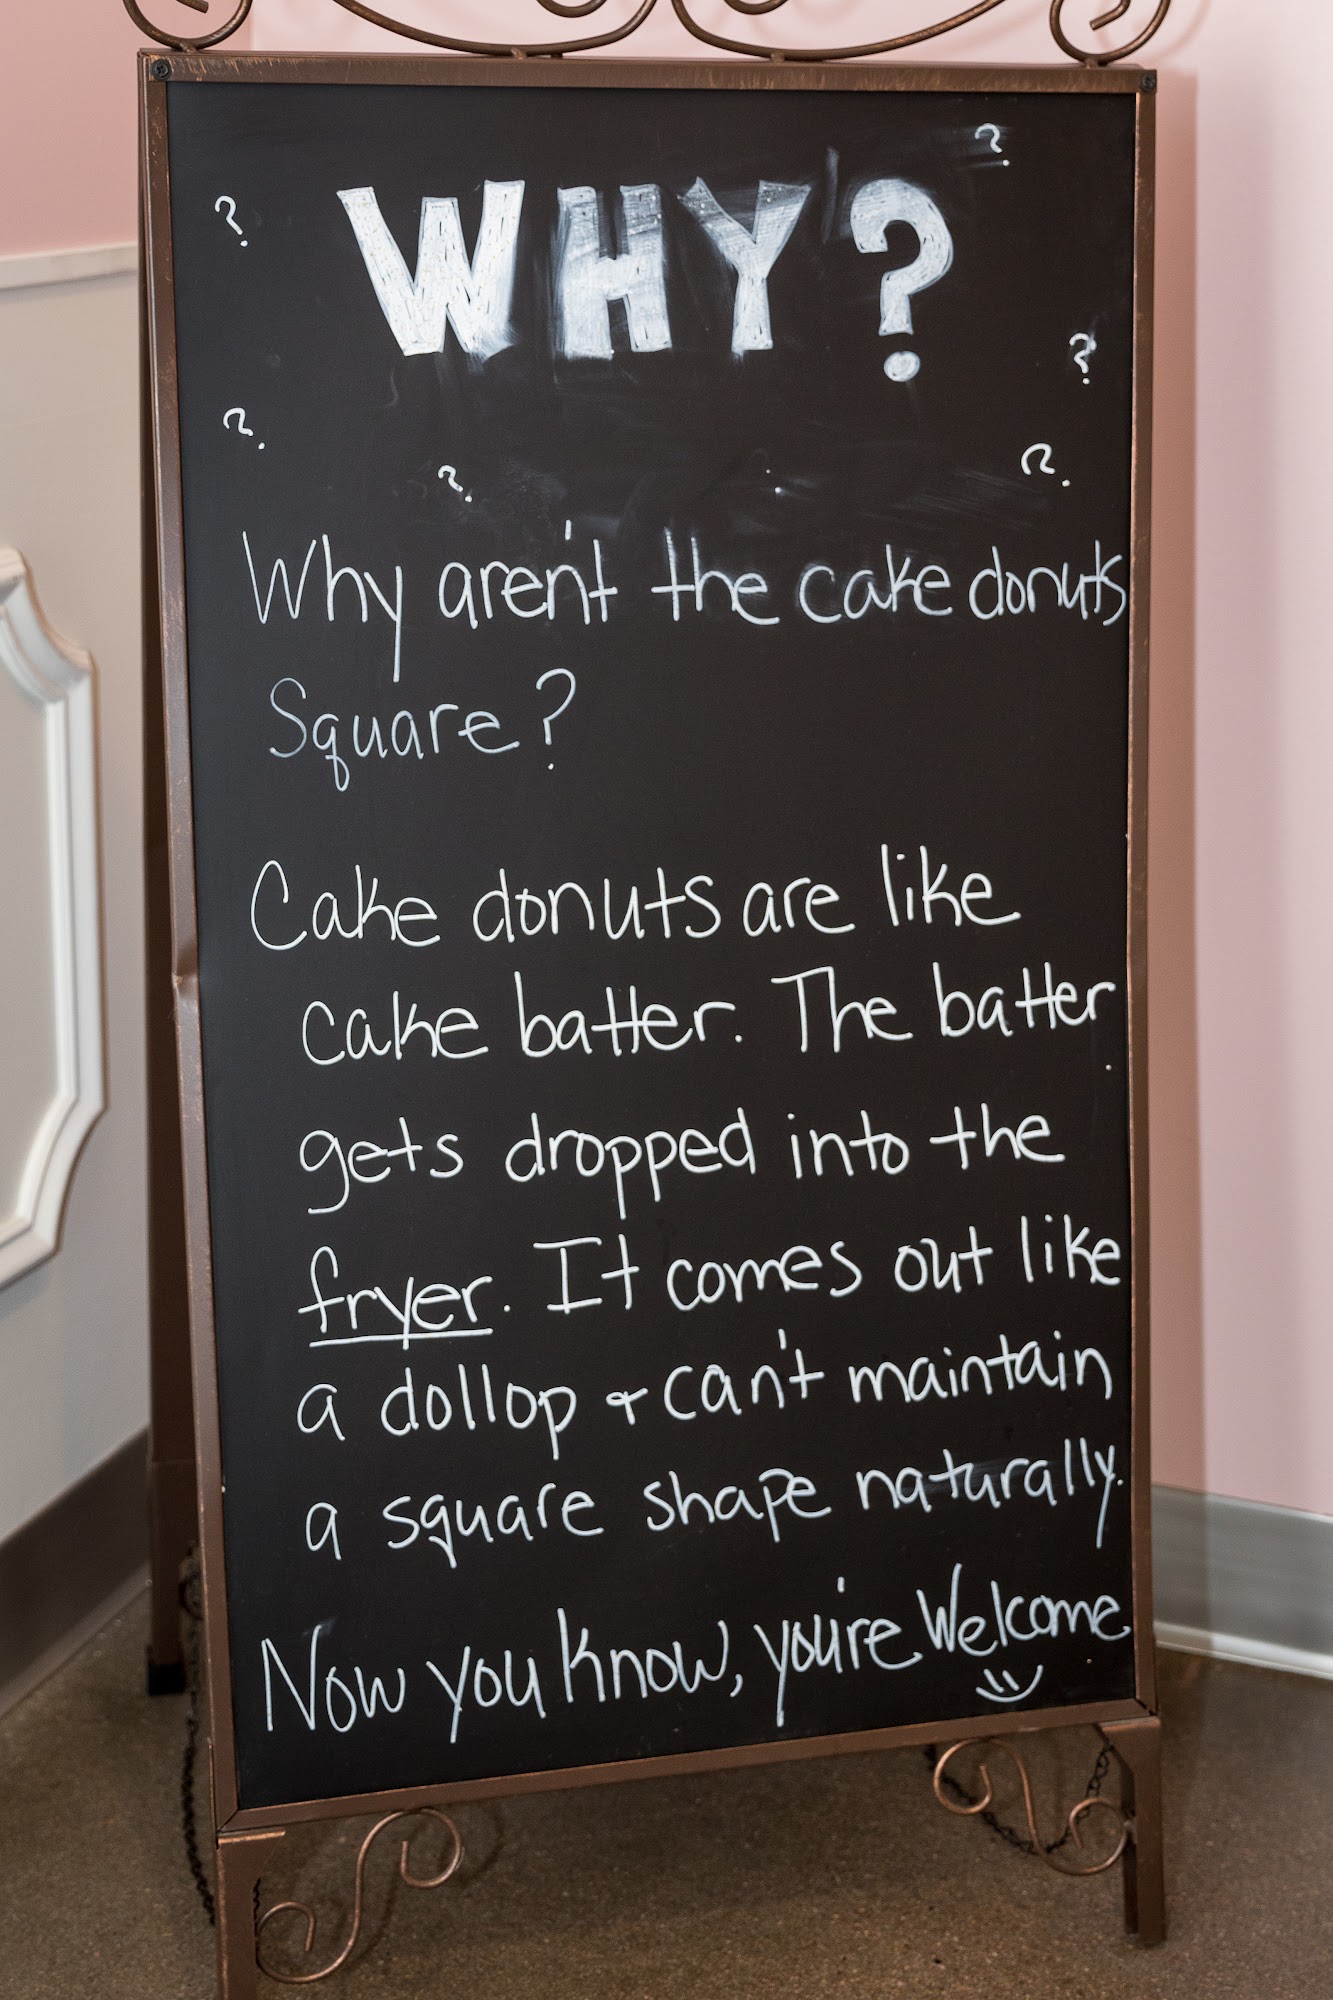 WHY?
?
?
?
?
?
?
Why aren't the cake donuts
Square?
Cake donuts are like
cake batter. The batter
gets dropped into the
fryer. It comes out like
a dollop & can't maintain
a square shape naturally.
Now you know, you're Welcome